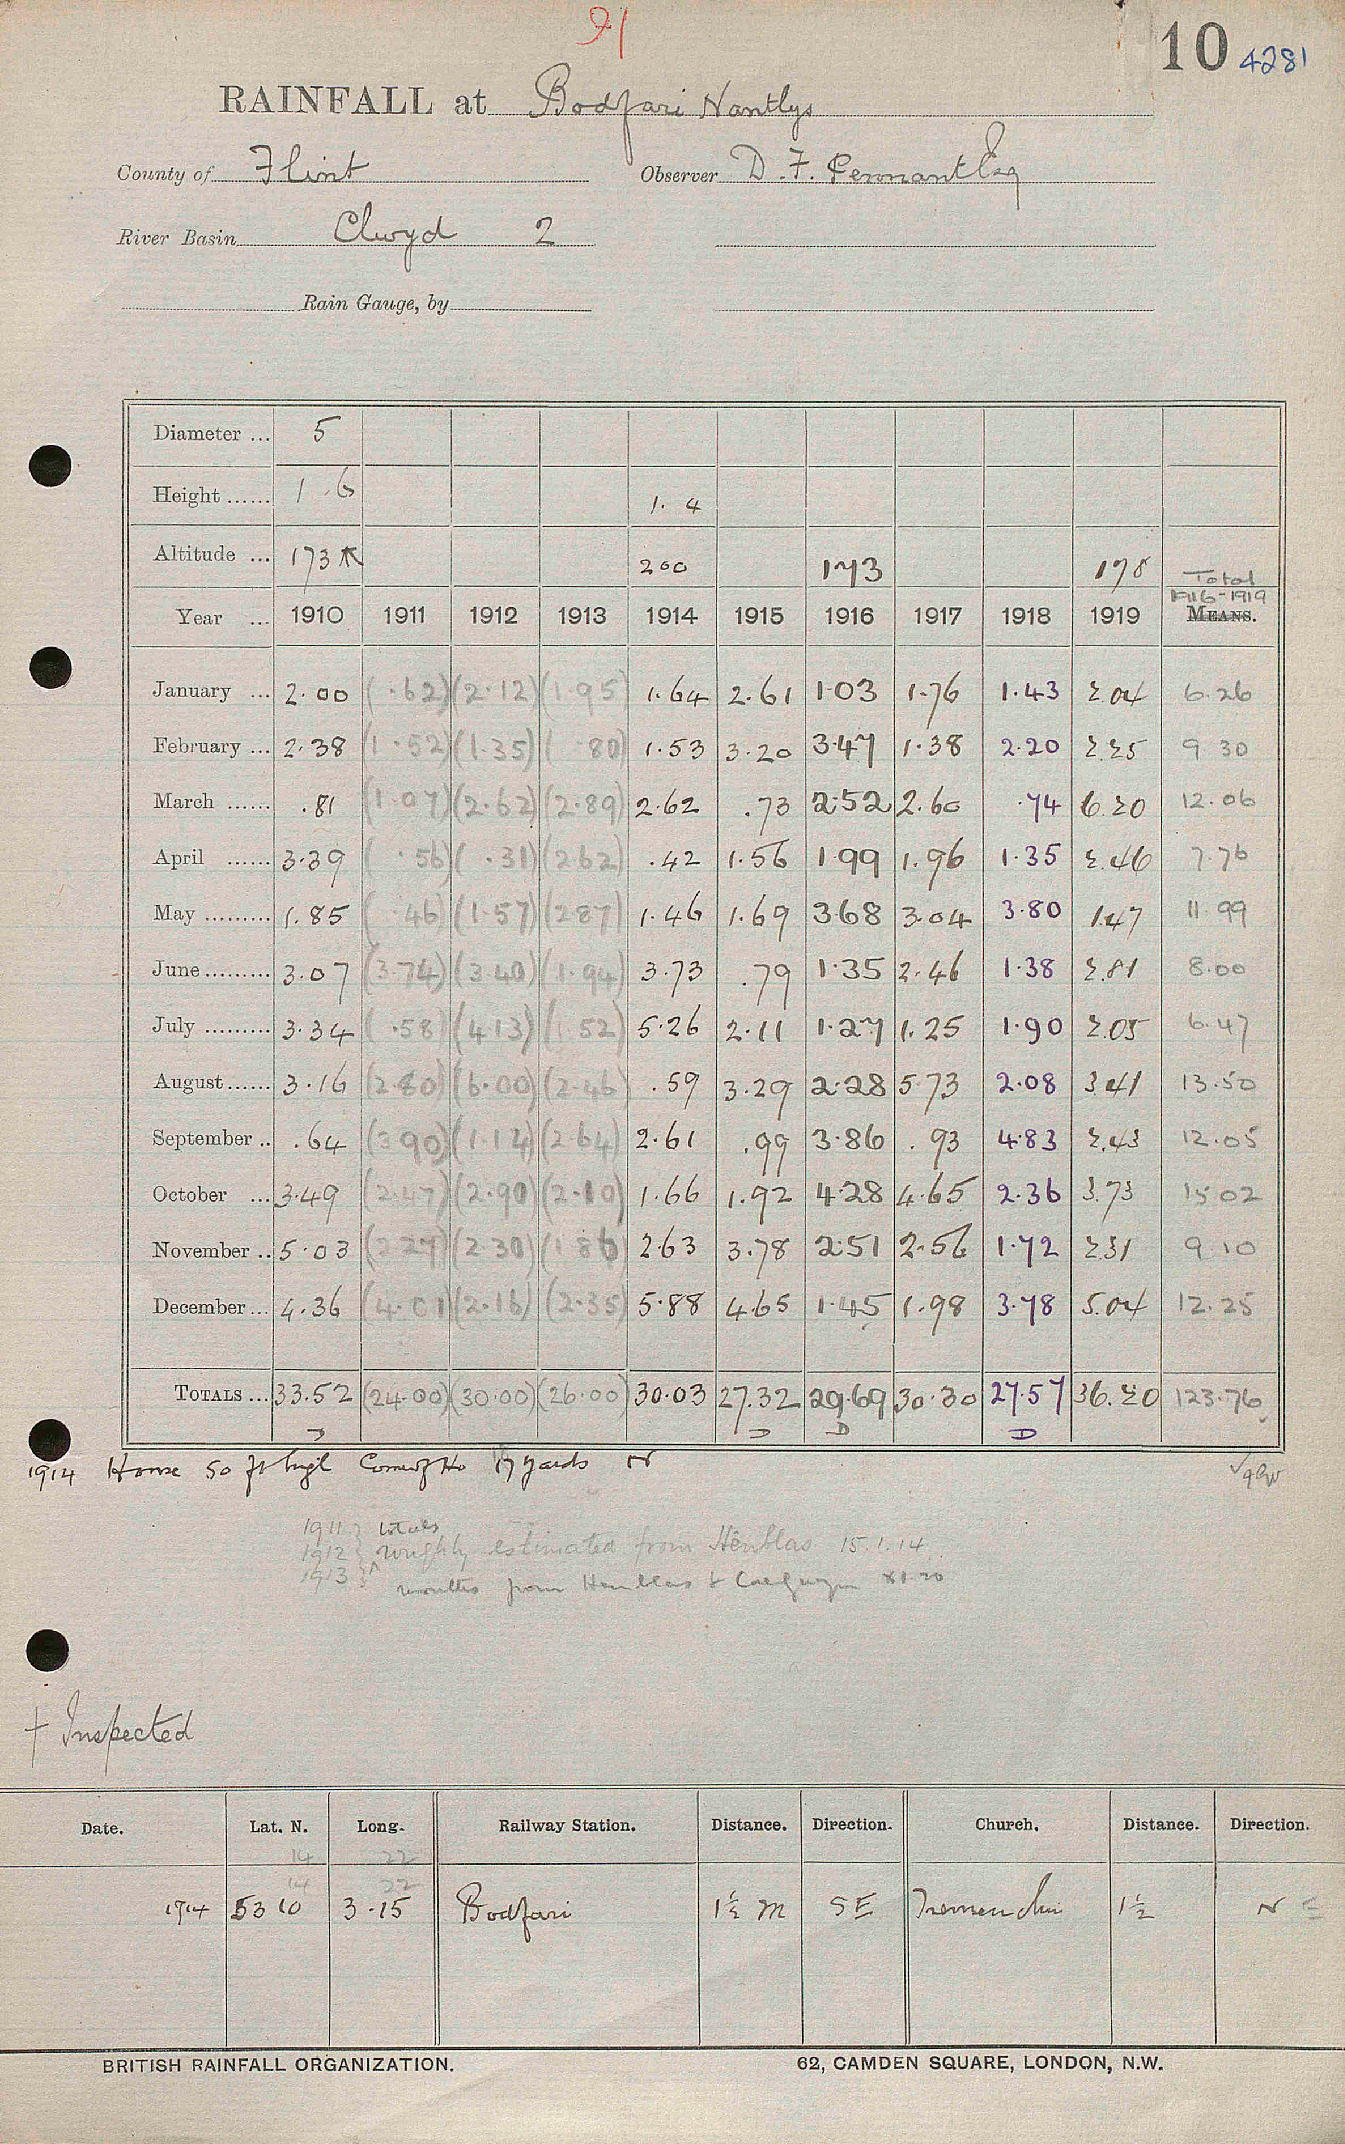 91
10 4281
RAINFALL at Bodfari Nantlys
County of Flint Observer D. F. Pennant Esq
River Basin Clwyd 2
Rain Gauge, by
Diameter ... 5
Height ...... 1 . 6 1. 4
Altitude ... 173 200 173 178 Total
1916-1919
Year ... 1910 1911 1912 1913 1914 1915 1916 1917 1918 1919 MEANS.
January ... 2.00 (.62) (2.12) (1.95) 1.64 2.61 1.03 1.76 1.43 2.04 6.26
February ... 2.38 (1.52) (1.35) (.80) 1.53 3.20 3.47 1.38 2.20 2.25 9.30
March ...... .81 (1.07) (2.62) (2.89) 2.62 .73 2.52 2.60 .74 6.20 12.06
April ...... 3.39 (.56) (.31) (2.62) .42 1.56 1.99 1.96 1.35 2.46 7.76
May ......... 1.85 (.46) (1.57) (2.87) 1.46 1.69 3.68 3.04 3.80 1.47 11.99
June ......... 3.07 (3.74) (3.40) (1.94) 3.73 .79 1.35 2.46 1.38 2.81 8.00
July ......... 3.34 (.58) (4.13) (1.52) 5.26 2.11 1.27 1.25 1.90 2.05 6.47
August ...... 3.16 (2.80) (6.00) (2.46) .59 3.29 2.28 5.73 2.08 3.41 13.50
September .. .64 (3.90) (1.14) (2.64) 2.61 .99 3.86 .93 4.83 2.43 12.05
October ... 3.49 (2.47) (2.90) (2.10) 1.66 1.92 4.28 4.65 2.36 3.73 15.02
November .. 5.03 (2.27) (2.30) (1.86) 2.63 3.78 2.51 2.56 1.72 2.31 9.10
December ... 4.36 (4.01) (2.16) (2.35) 5.88 4.65 1.45 1.98 3.78 5.04 12.25
TOTALS ... 33.52 (24.00) (30.00) (26.00) 30.03 27.32 29.69 30.30 27.57 36.20 123.76
D D D D
1914 House 50 ft high Corner of Ho 17 yards N
1911 } totals
1912 } roughly estimated from Hênblas 15.1.14
1913 } months from Henblas &
† Inspected
Date. Lat. N. Long. Railway Station. Distance. Direction. Church. Distance. Direction.
14 22
14 22
1914 53 10 3.15 Bodfari 1½ m SE Tremeirchion 1½ N E
BRITISH RAINFALL ORGANIZATION. 62, CAMDEN SQUARE, LONDON, N.W.